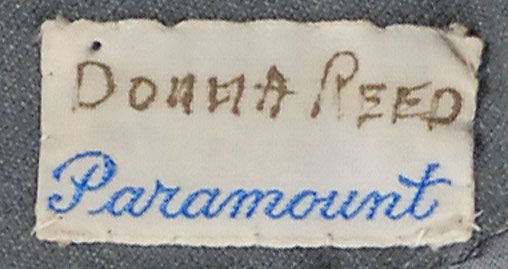 DONNA REED
Paramount